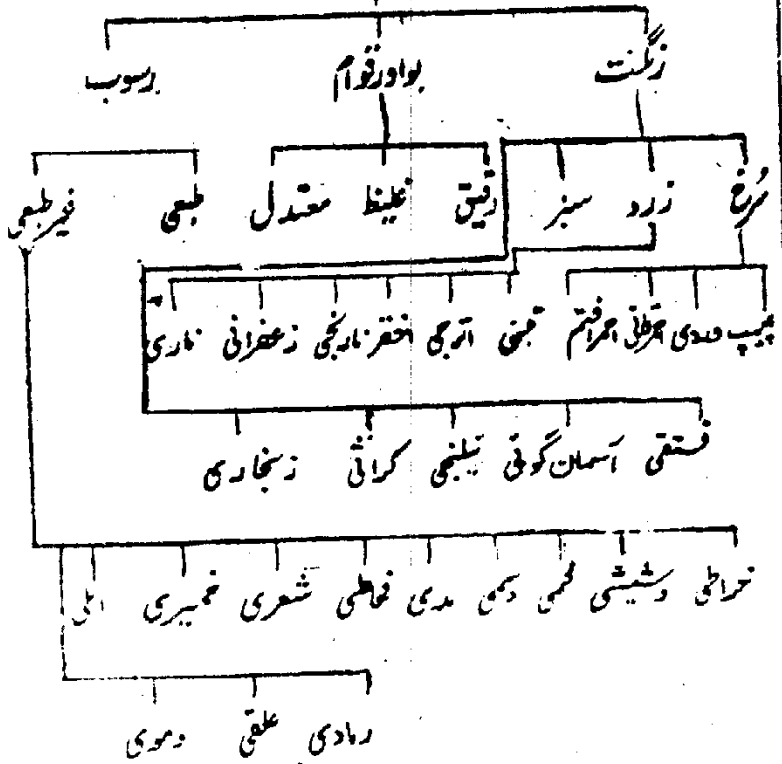 رنگت بو اور قوام رسوب
سرخ زرد سبز رقیق غلیظ معتدل طبعی غیر طبعی
وردی احمر قانی احمر اقتم تبنی اترجی نارنجی زعفرانی ناری
فستقی آسمان گونی نیلنجی کراثی زنجاری
خراطی دشیشی لحمی دسمی مدی مخاطی شعری خمیری
رمادی علقی دموی